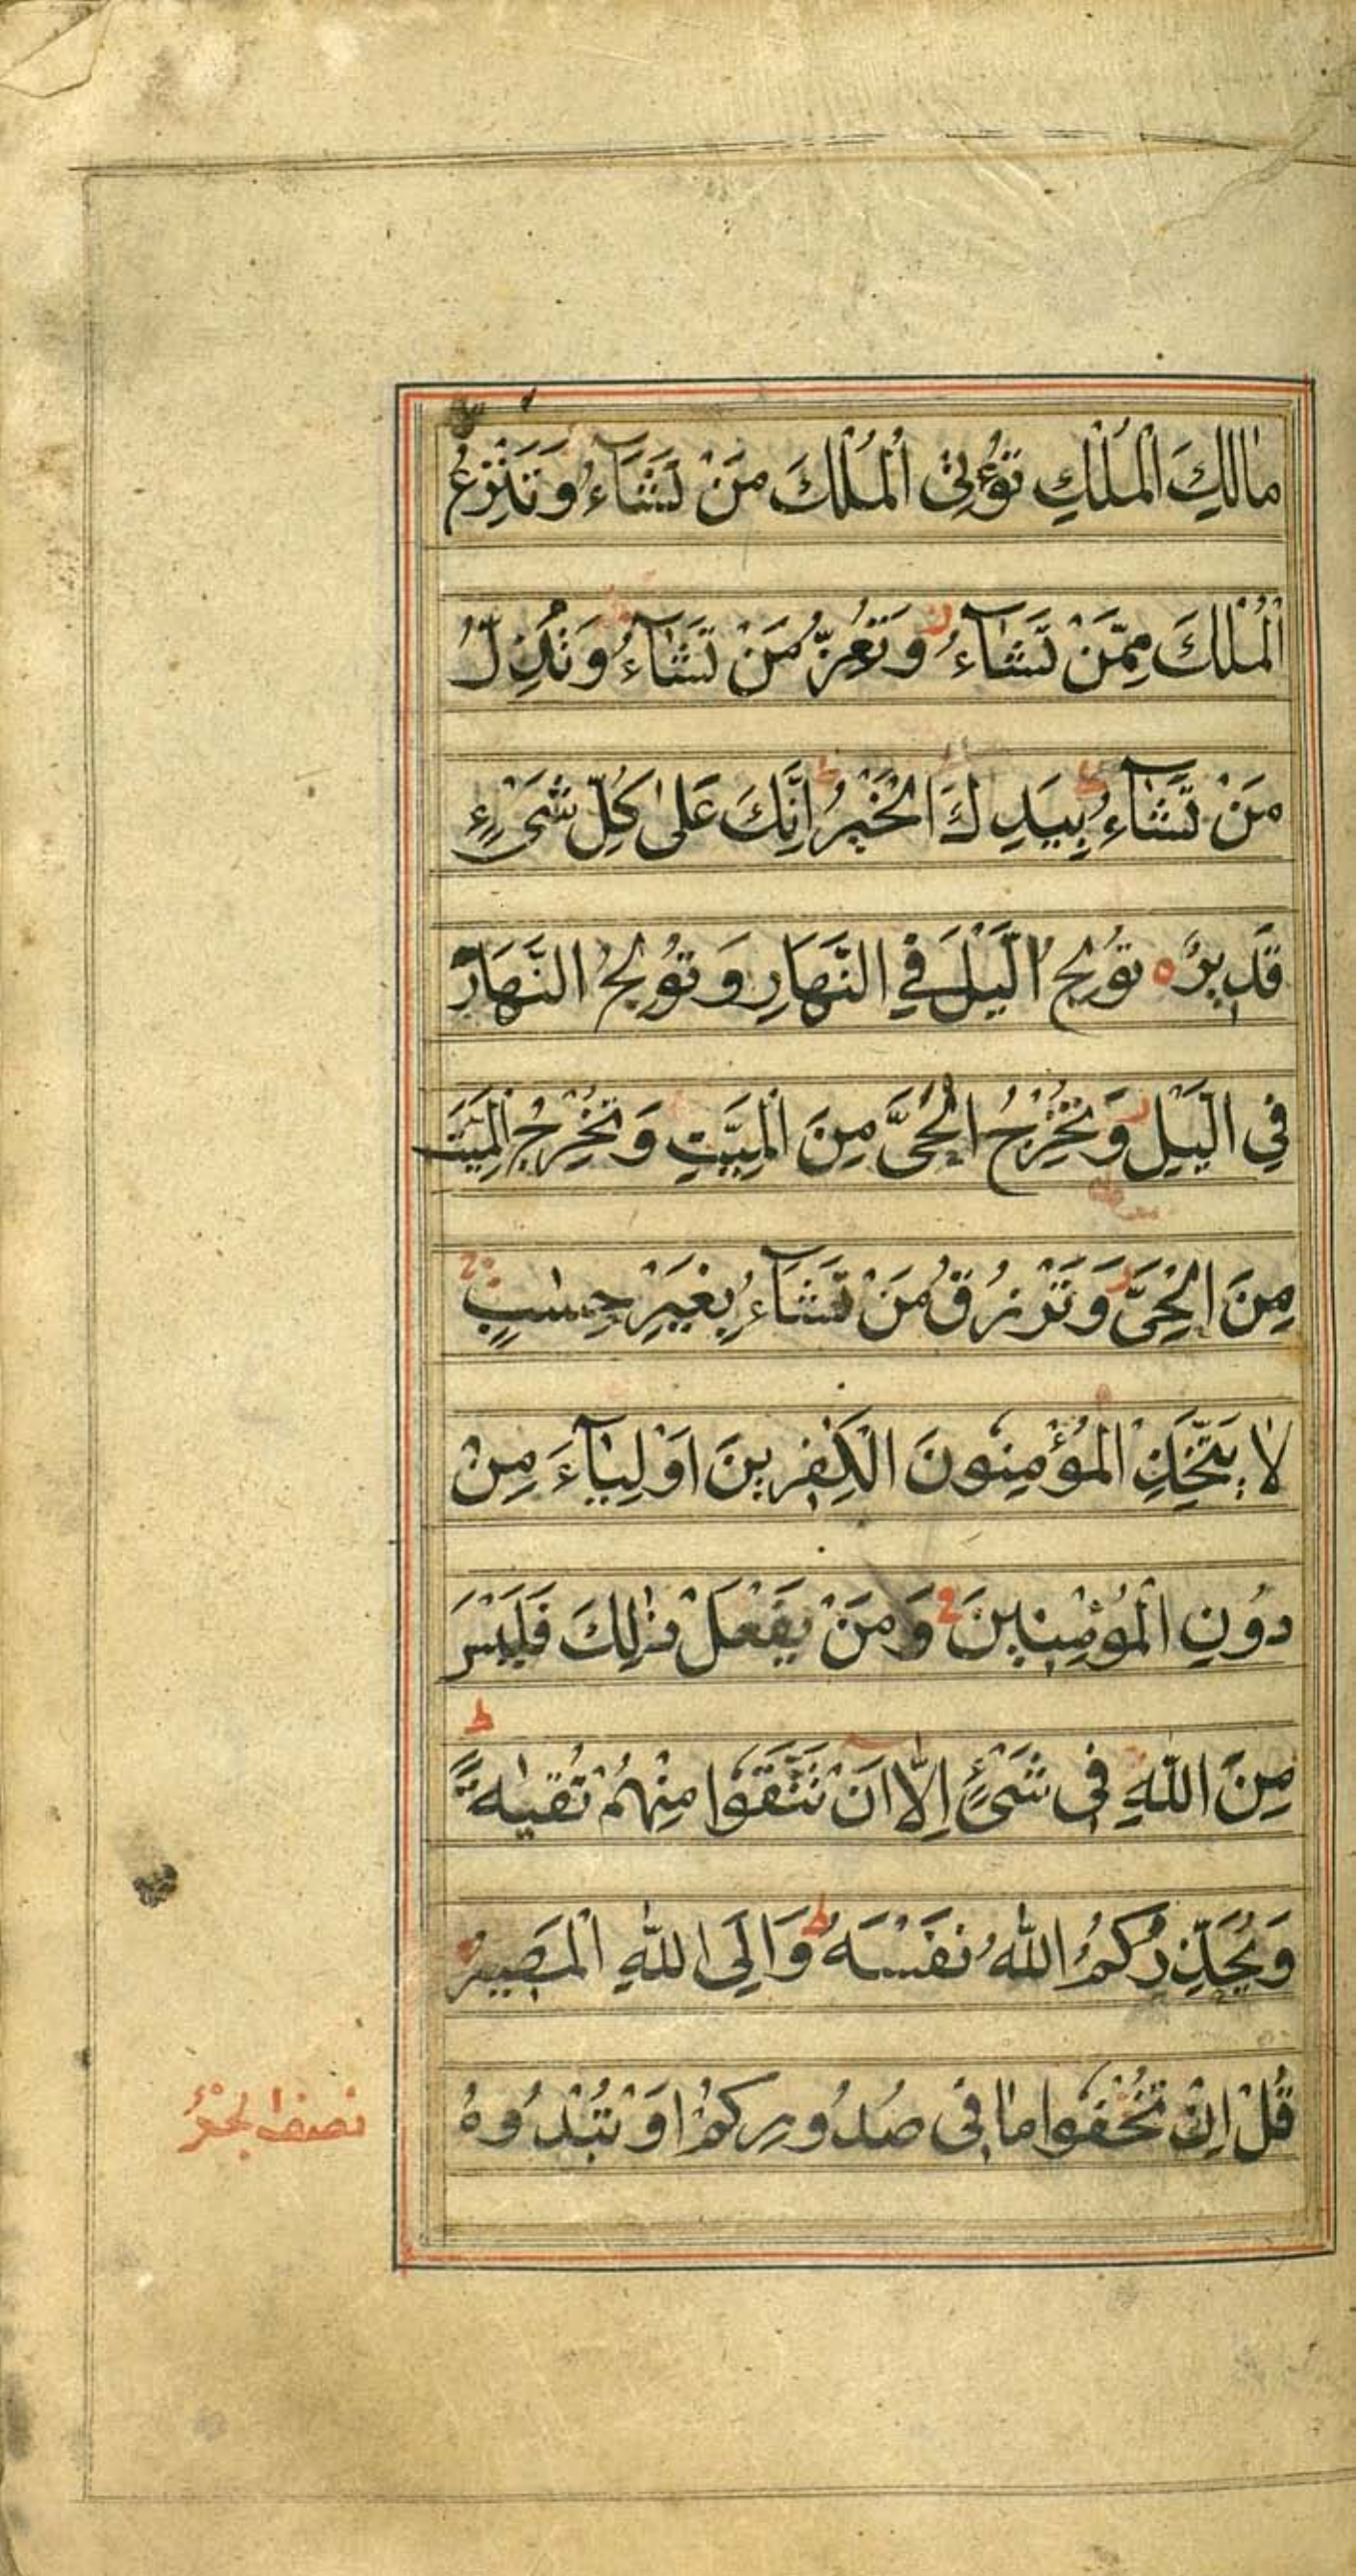 مَالِكَ الْمُلْكِ تُؤْتِى الْمُلْكَ مَنْ تَشَآءُ وَتَنْزِعُ
الْمُلْكَ مِمَّنْ تَشَآءُ ز وَتُعِزُّ مَنْ تَشَآءُ وَتُذِلُّ
مَنْ تَشَآءُ ط بِيَدِكَ الْخَيْرُ ط اِنَّكَ عَلٰى كُلِّ شَىْءٍ
قَدِيرٌ ه تُولِجُ الَّيْلَ فِي النَّهَارِ وَتُولِجُ النَّهَارَ
فِي الَّيْلِ ز وَتُخْرِجُ الْحَىَّ مِنَ الْمَيِّتِ وَتُخْرِجُ الْمَيِّتَ
مِنَ الْحَىِّ ز وَتَرْزُقُ مَنْ تَشَآءُ بِغَيْرِ حِسٰبٍ
لَا يَتَّخِذِ الْمُؤْمِنُونَ الْكٰفِرِينَ اَوْلِيَآءَ مِنْ
دُونِ الْمُؤْمِنِينَ ج وَمَنْ يَفْعَلْ ذٰلِكَ فَلَيْسَ
مِنَ اللّٰهِ فِى شَىْءٍ اِلَّا اَنْ تَتَّقُوا مِنْهُمْ تُقٰىةً ط
وَيُحَذِّرُكُمُ اللّٰهُ نَفْسَهُ ط وَاِلَى اللّٰهِ الْمَصِيرُ
قُلْ اِنْ تُخْفُوا مَا فِى صُدُورِكُمْ اَوْ تُبْدُوهُ
نصف الجزء